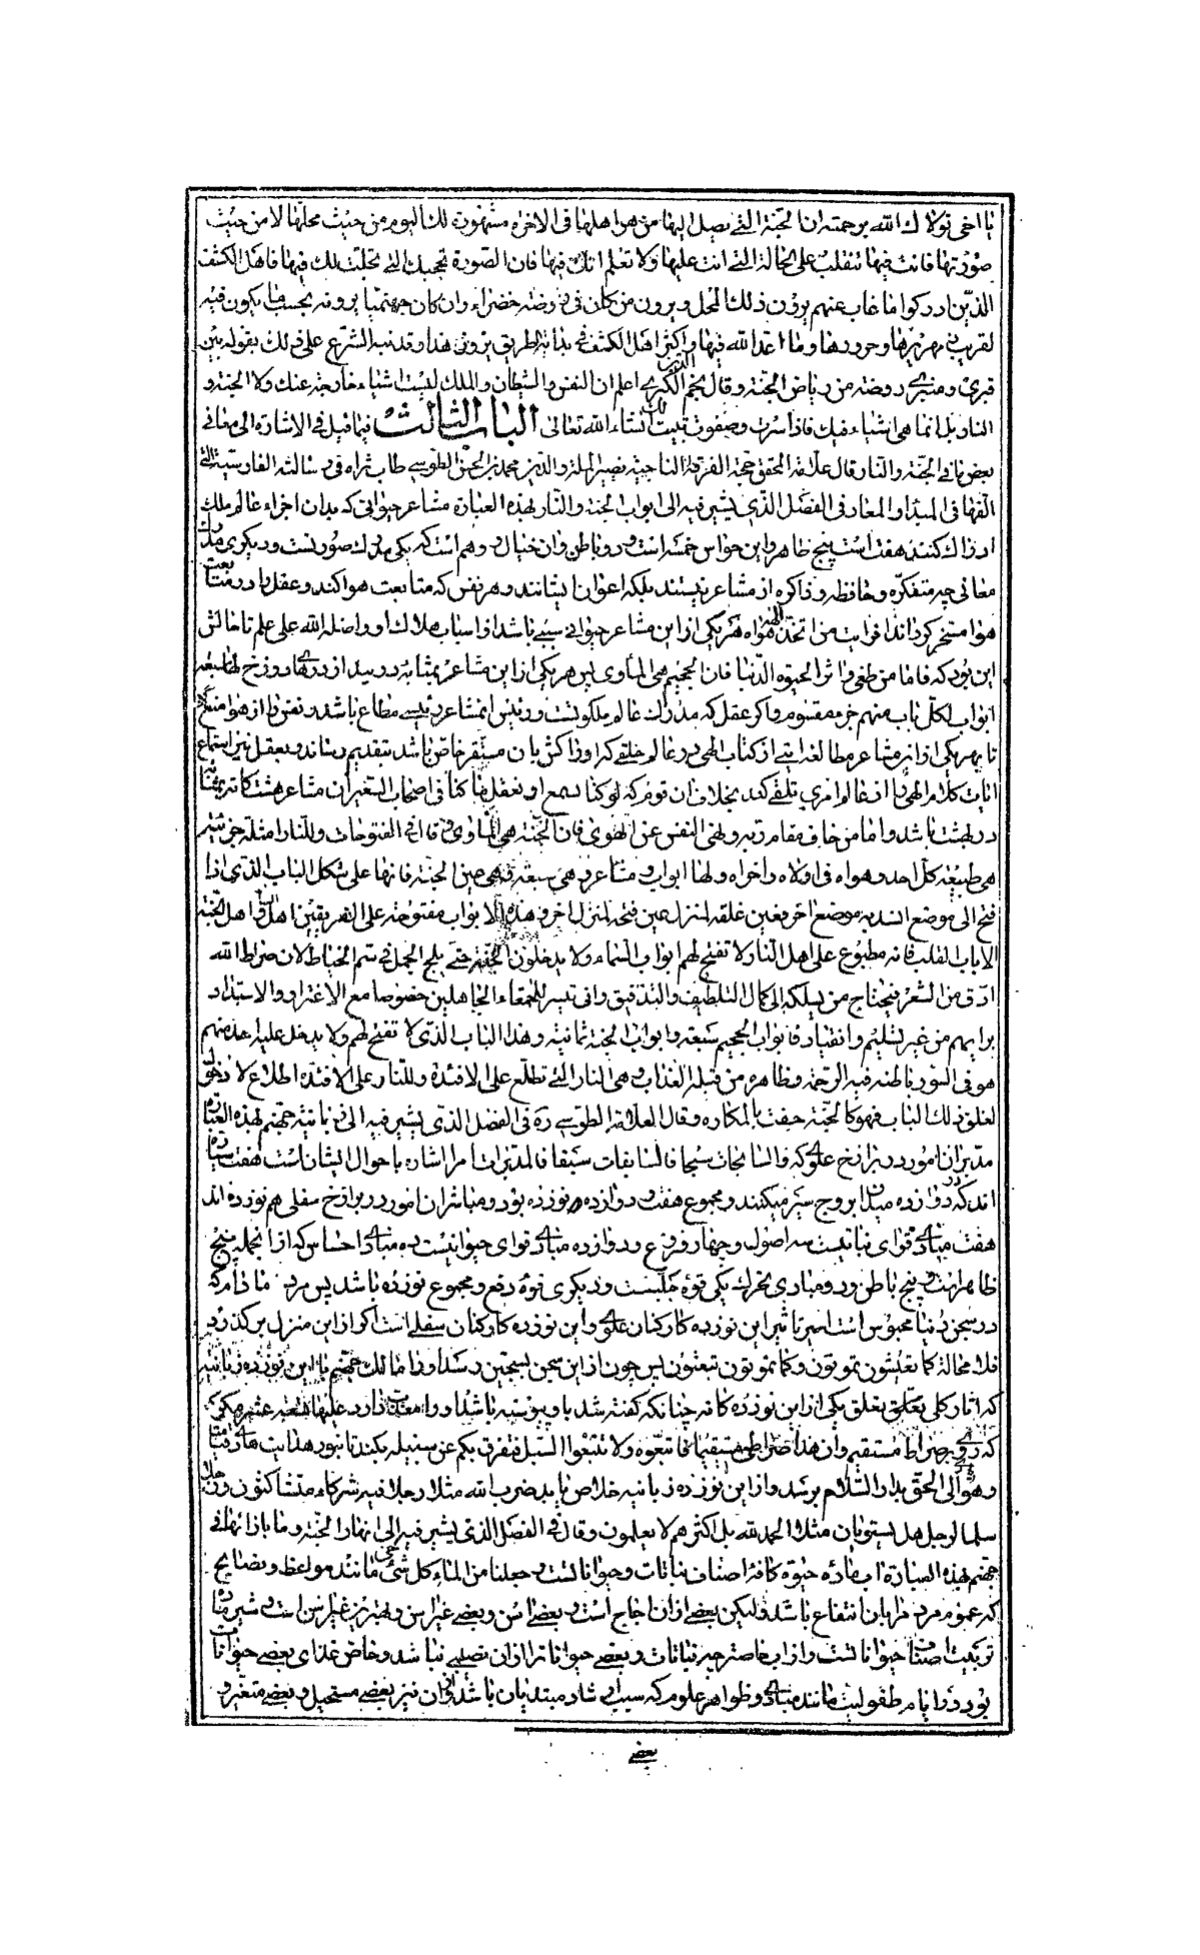 يا اخى تولاك الله برحمته ان الجنة التى يصل اليها من هو اهلها فى الاخرة مشهودة لك اليوم من حيث محلها لا من حيث
صورتها فانت فيها تنقلب على الحالة التى انت عليها ولا تعلم انك فيها فان الصورة تحجبك التى تجلت لك فيها فاهل الكشف
الذين ادركوا ما غاب عنهم يرون ذلك المحل ويرون من كان فى روضة خضراء وان كان جهنميا يرونه بحسب ما يكون فيه
من زمهريرها وحرورها وما اعد الله فيها واكثر اهل الكشف فى بداية الطريق يرون هذا وقد نبه الشرع على ذلك بقوله بين
قبرى ومنبرى روضة من رياض الجنة وقال نجم الدين الكبرى اعلم ان النفس والشيطان والملك ليست اشياء خارجة عنك ولا الجنة و
النار بل انما هى اشياء فيك فاذا سرت وصفوت تبينت لك انشاء الله تعالى الباب الثالث فيما قيل فى الاشارة الى معانى
بعض ما فى الجنة والنار قال علامة المحقق حجة الفرقة الناجية نصير الملة والدين محمد بن الحسن الطوسى طاب ثراه فى رسالته الفارسية التى
الفها فى المبدا والمعاد فى الفصل الذى يشير فيه الى ابواب الجنة والنار بهذه العبارة مشاعر حيوانى كه بدان اجزاء عالم ملك
ادراك كنند هفت است پنج ظاهر واين حواس خمسه است ودو باطن وان خيال ووهم است كه يكى مدرك صورتست وديكرى مدرك
معانى چه متفكره وحافظه وذاكره از مشاعر نيستند بلكه اعوان ايشانند وهر نفس كه متابعت هوا كند وعقل را در متابعت
هوا مسخر كرداند افرايت من اتخذ الهه هواه هر يكى از اين مشاعر حيوانى سببى باشد از اسباب هلاك او واضله الله على علم تا حالش
اين بود كه فاما من طغى واثر الحيوة الدنيا فان الجحيم هى الماوى پس هر يكى از اين مشاعر بمثابه دريند از درهاى دوزخ لها سبعة
ابواب لكل باب منهم جزء مقسوم واكر عقل كه مدرك عالم ملكوتست ورئيس انمشاعر رئيسى مطاع باشد ونفس را از هوا منع كند
تا بهر يكى از اين مشاعر مطالعه ايتى از كتاب الهى در عالم خلقى كه ادراكش بان مشعر خاص باشد بتقديم رساند وبعقل نيز استماع
ايات كلام الهى را از عالم امرى تلقى كند بخلاف ان قوم كه لو كنا نسمع او نعقل ما كنا فى اصحاب السعير ان مشاعر هشتكانه بمثابه
در بهشت باشد واما من خاف مقام ربه ونهى النفس عن الهوى فان الجنة هى الماوى وقال فى الفتوحات وللنار امثلة جزئية
هى طبيعة كل احد وهواه فى اولاه واخراه ولها ابواب ومشاعره وهى سبعة وهى عين الجنة فانها على شكل الباب الذى اذا
فتح الى موضع انسد به موضع اخر فعين غلقه لمنزل عين فتحه لمنزل اخر وهذه الابواب مفتوحة على الفريقين اهل النار واهل الجنة
الا باب القلب فانه مطبوع على اهل النار ولا تفتح لهم ابواب السماء ولا يدخلون الجنة حتى يلج الجمل فى سم الخياط لان صراط الله
ادق من الشعر فيحتاج من يسلكه الى كمال التلطيف والتدقيق وانى تيسر للحمقاء الجاهلين خصوصا مع الاغترار والاستبداد
برايهم من غير تسليم وانقياد فابواب الجحيم سبعة وابواب الجنة ثمانية وهذا الباب الذى لا تفتح لهم ولا يدخل عليه احد منهم
هو فى السور باطنه فيه الرحمة وظاهره من قبله العذاب وهى النار التى تطلع على الافئدة وللنار على الافئدة اطلاع لا دخول
لغلق ذلك الباب فهو كالجنة حفت بالمكاره وقال العلامة الطوسى ره فى الفصل الذى يشير فيه الى زبانية جهنم بهذه العبارة
مدبران امور در برازخ علوى كه والسابحات سبحا فالسابقات سبقا فالمدبرات امرا اشاره باحوال ايشان است هفت سياره
اند كه در دوازده ميدان بروج سير ميكنند ومجموع هفت ودوازده نوزده بود ومباشران امور در برازخ سفلى هم نوزده اند
هفت مبادى قواى نباتيست سه اصول وچهار فروع ودوازده مبادى قواى حيوانيست ده مبادى احساس كه از انجمله پنج
ظاهر است وپنج باطن ودو مبادى تحريك يكى قوه جذبست وديكرى قوه دفع ومجموع نوزده باشد پس مردم مادام كه
در سجن دنيا محبوس است اسير تاثير اين نوزده كاركنان علوى واين نوزده كاركنان سفلى است اكر از اين منزل بر نكذرد
فلا محالة كما تعيشون تموتون وكما تموتون تبعثون پس چون از اين سجن بسجين رسد او را مالك جهنم با اين نوزده زبانيه
كه اثار كلى تعلق بيكى از اين نوزده كانه چنانكه كفته شد باو پيوسته باشد او را معذب دارد عليها تسعة عشر مكر
كه در صراط مستقيم وان هذا صراطى مستقيما فاتبعوه ولا تتبعوا السبل فتفرق بكم عن سبيله بكذرد تا بنور هدايت هادى قيامت
وهو الى الحق بدار السلام برسد واز اين نوزده زبانيه خلاص يابد ضرب الله مثلا رجلا فيه شركاء متشاكسون ورجلا
سلما لرجل هل يستويان مثلا الحمد لله بل اكثرهم لا يعلمون وقال فى الفصل الذى يشير فيه الى انهار الجنة وما بازائها فى
جهنم بهذه العبارة اب ماده حيوة كافه اصناف نباتات وحيواناتست وجعلنا من الماء كل شئ حى مانند مواعظ ونصايح
كه عموم مردم را بان انتفاع باشد وليكن بعضى از ان اجاج است وبعضى اسن وبعضى غير اسن وبهترين غير اسن است وشير ماده
تربيت اصناف حيواناتست واز اب خاصتر چه نباتات وبعضى حيوانات را از ان نصيبى نباشد وخاص غذاى بعضى حيوانات
بود در ايام طفوليت مانند مبادى وظواهر علوم كه سبب ارشاد مبتديان باشد وان نيز بعضى مستحيل وبعضى متغير و
بعضى